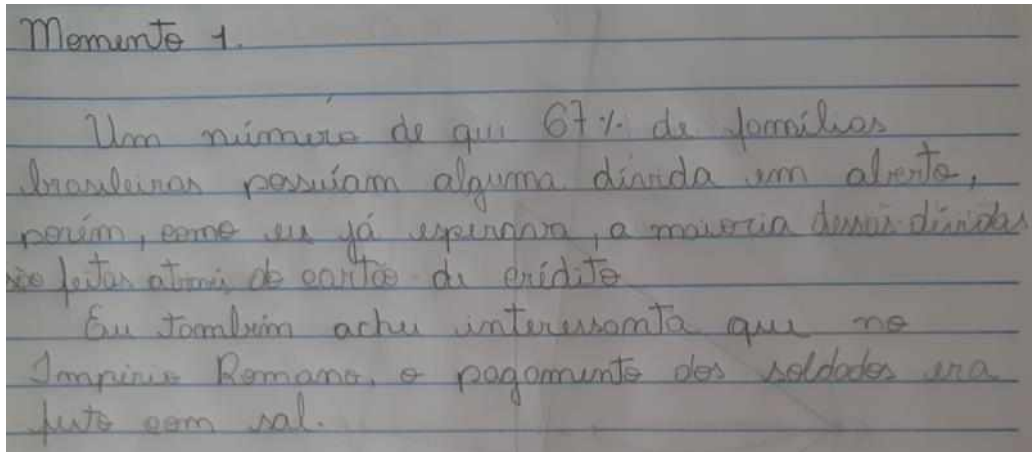 Momento 1.
Um número de que 67% de famílias
brasileiras possuíam alguma dívida em aberto,
porém, como eu já esperava, a maioria dessas dívidas
são feitas através de cartão de crédito
Eu também achei interessante que no
Império Romano, o pagamento dos soldados era
feito com sal.